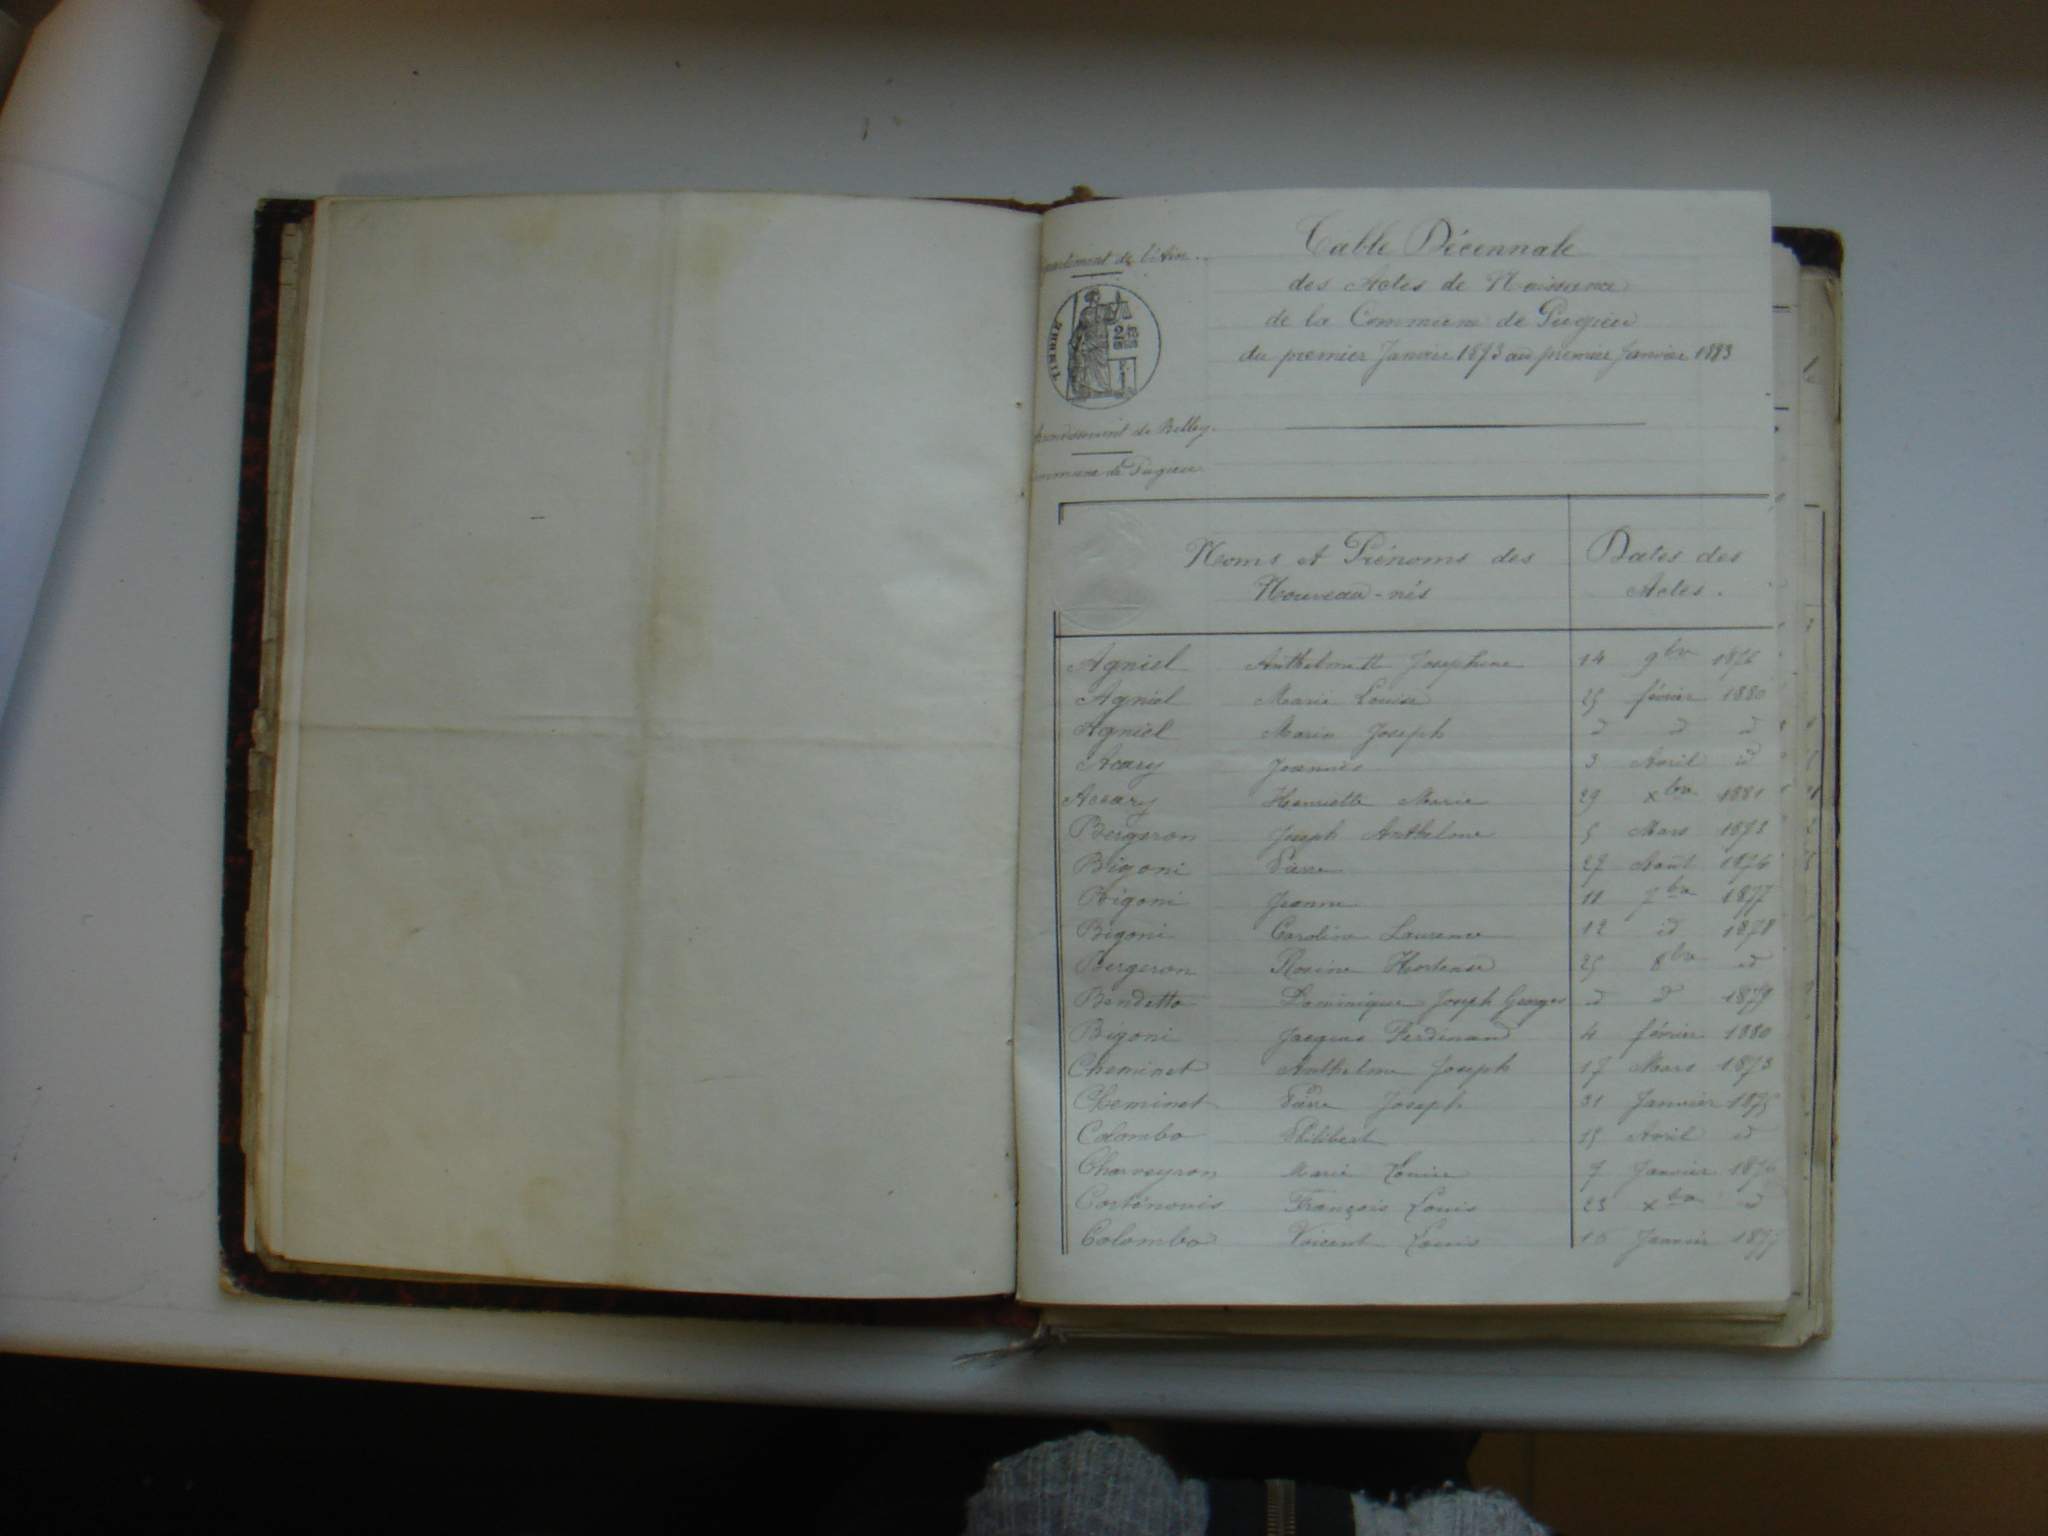 Table Décennale
des Actes de Naissance
de la Commune de Pugieu
du premier Janvier 1873 au premier Janvier 1883
partement de l'Ain
TIMBRE
2
rrondissement de Belley.
ommune de Pugieu
Noms et Prénoms des
Nouveau-nés
Dates des
Actes.
Agniel Anthelmette Josephine 14 9bre 1876
Agniel Marie Louise 25 février 1880
Agniel Marie Joseph d d d
Acary Joannès 3 Avril id
Accary Henriette Marie 29 xbre 1881
Bergeron Joseph Anthelme 5 Mars 1873
Bigoni Pierre 27 Août 1876
Bigoni Jeanne 11 7bre 1877
Bigoni Caroline Laurence 12 id 1878
Bergeron Rosine Hortense 25 8bre id
Bendetto Dominique Joseph Georges d d 1879
Bigoni Jacques Ferdinand 4 février 1880
Cheminet Anthelme Joseph 17 Mars 1873
Cheminet Pierre Joseph 31 Janvier 1875
Colombo Philibert 15 Avril id
Charveyron Marie Louise 7 Janvier 1876
Corténovis François Louis 23 xbre d
Colombo Vincent Louis 16 Janvier 1877